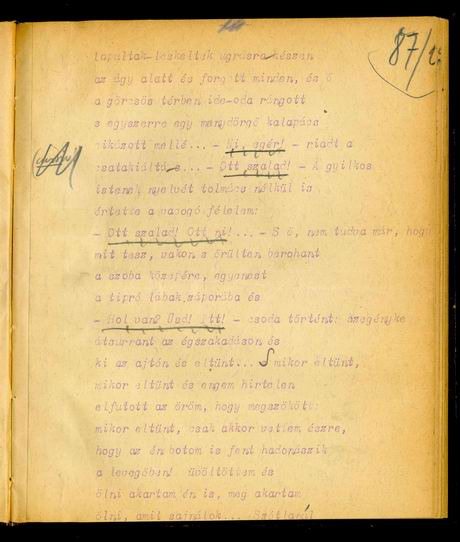 87/
lapultak leskeltek ugrásra készen
az ágy alatt és forgott minden, és ő
a görcsös térben ide-oda rángott
s egyszerre egy menydörgő kalapács
zikázott mellé... - Ni, egér! - riadt a
csatakiáltás... - Ott szalad! - A gyilkos
istenek nyelvét tolmács nélkül is
értette a vacogó félelem:
- Ott szalad! Ott ni!... - S ő, nem tudva már, hogy
mit tesz, vakon s őrülten berohant
a szoba közepére, egyenest
a tipró lábak záporába és
- Hol van? Üsd! Itt! - csoda történt: szegényke
átsurrant az égszakadáson és
ki az ajtón és eltünt... S mikor eltünt,
mikor eltünt és engem hirtelen
elfutott az öröm, hogy megszökött:
mikor eltünt, csak akkor vettem észre,
hogy az én botom is fent hadonászik
a levegőben! üvöltöttem és
ölni akartam én is, még akartam
ölni, amit sajnálok... Szótlanúl